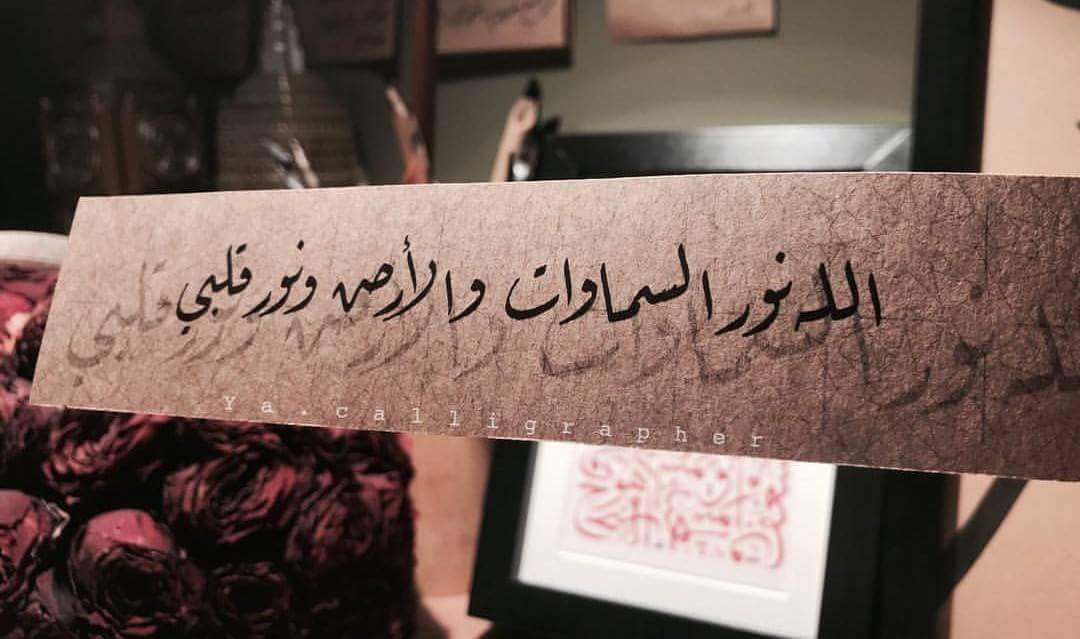 الله نور السماوات والأرض ونور قلبي
Ya.calligrapher